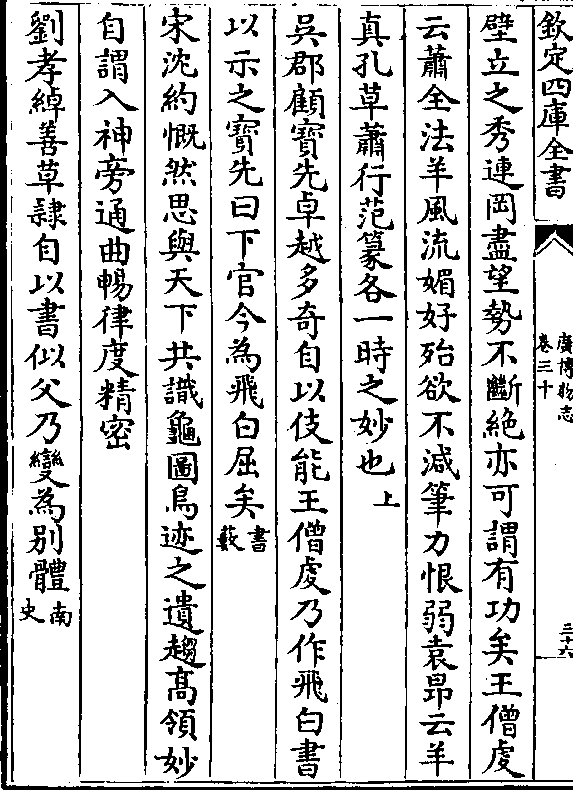 欽定四庫全書
廣博物志
卷三十
三十六
壁立之秀連岡盡望勢不斷絕亦可謂有功矣王僧虔
云蕭全法羊風流媚好殆欲不減筆力恨弱袁昂云羊
真孔草蕭行范篆各一時之妙也上
吳郡顧寶先卓越多奇自以伎能王僧虔乃作飛白書
以示之寶先曰下官今為飛白屈矣書藪
宋沈約慨然思與天下共識龜圖鳥迹之遺趨高領妙
自謂入神旁通曲暢律度精密
劉孝綽善草隸自以書似父乃變為別體南史